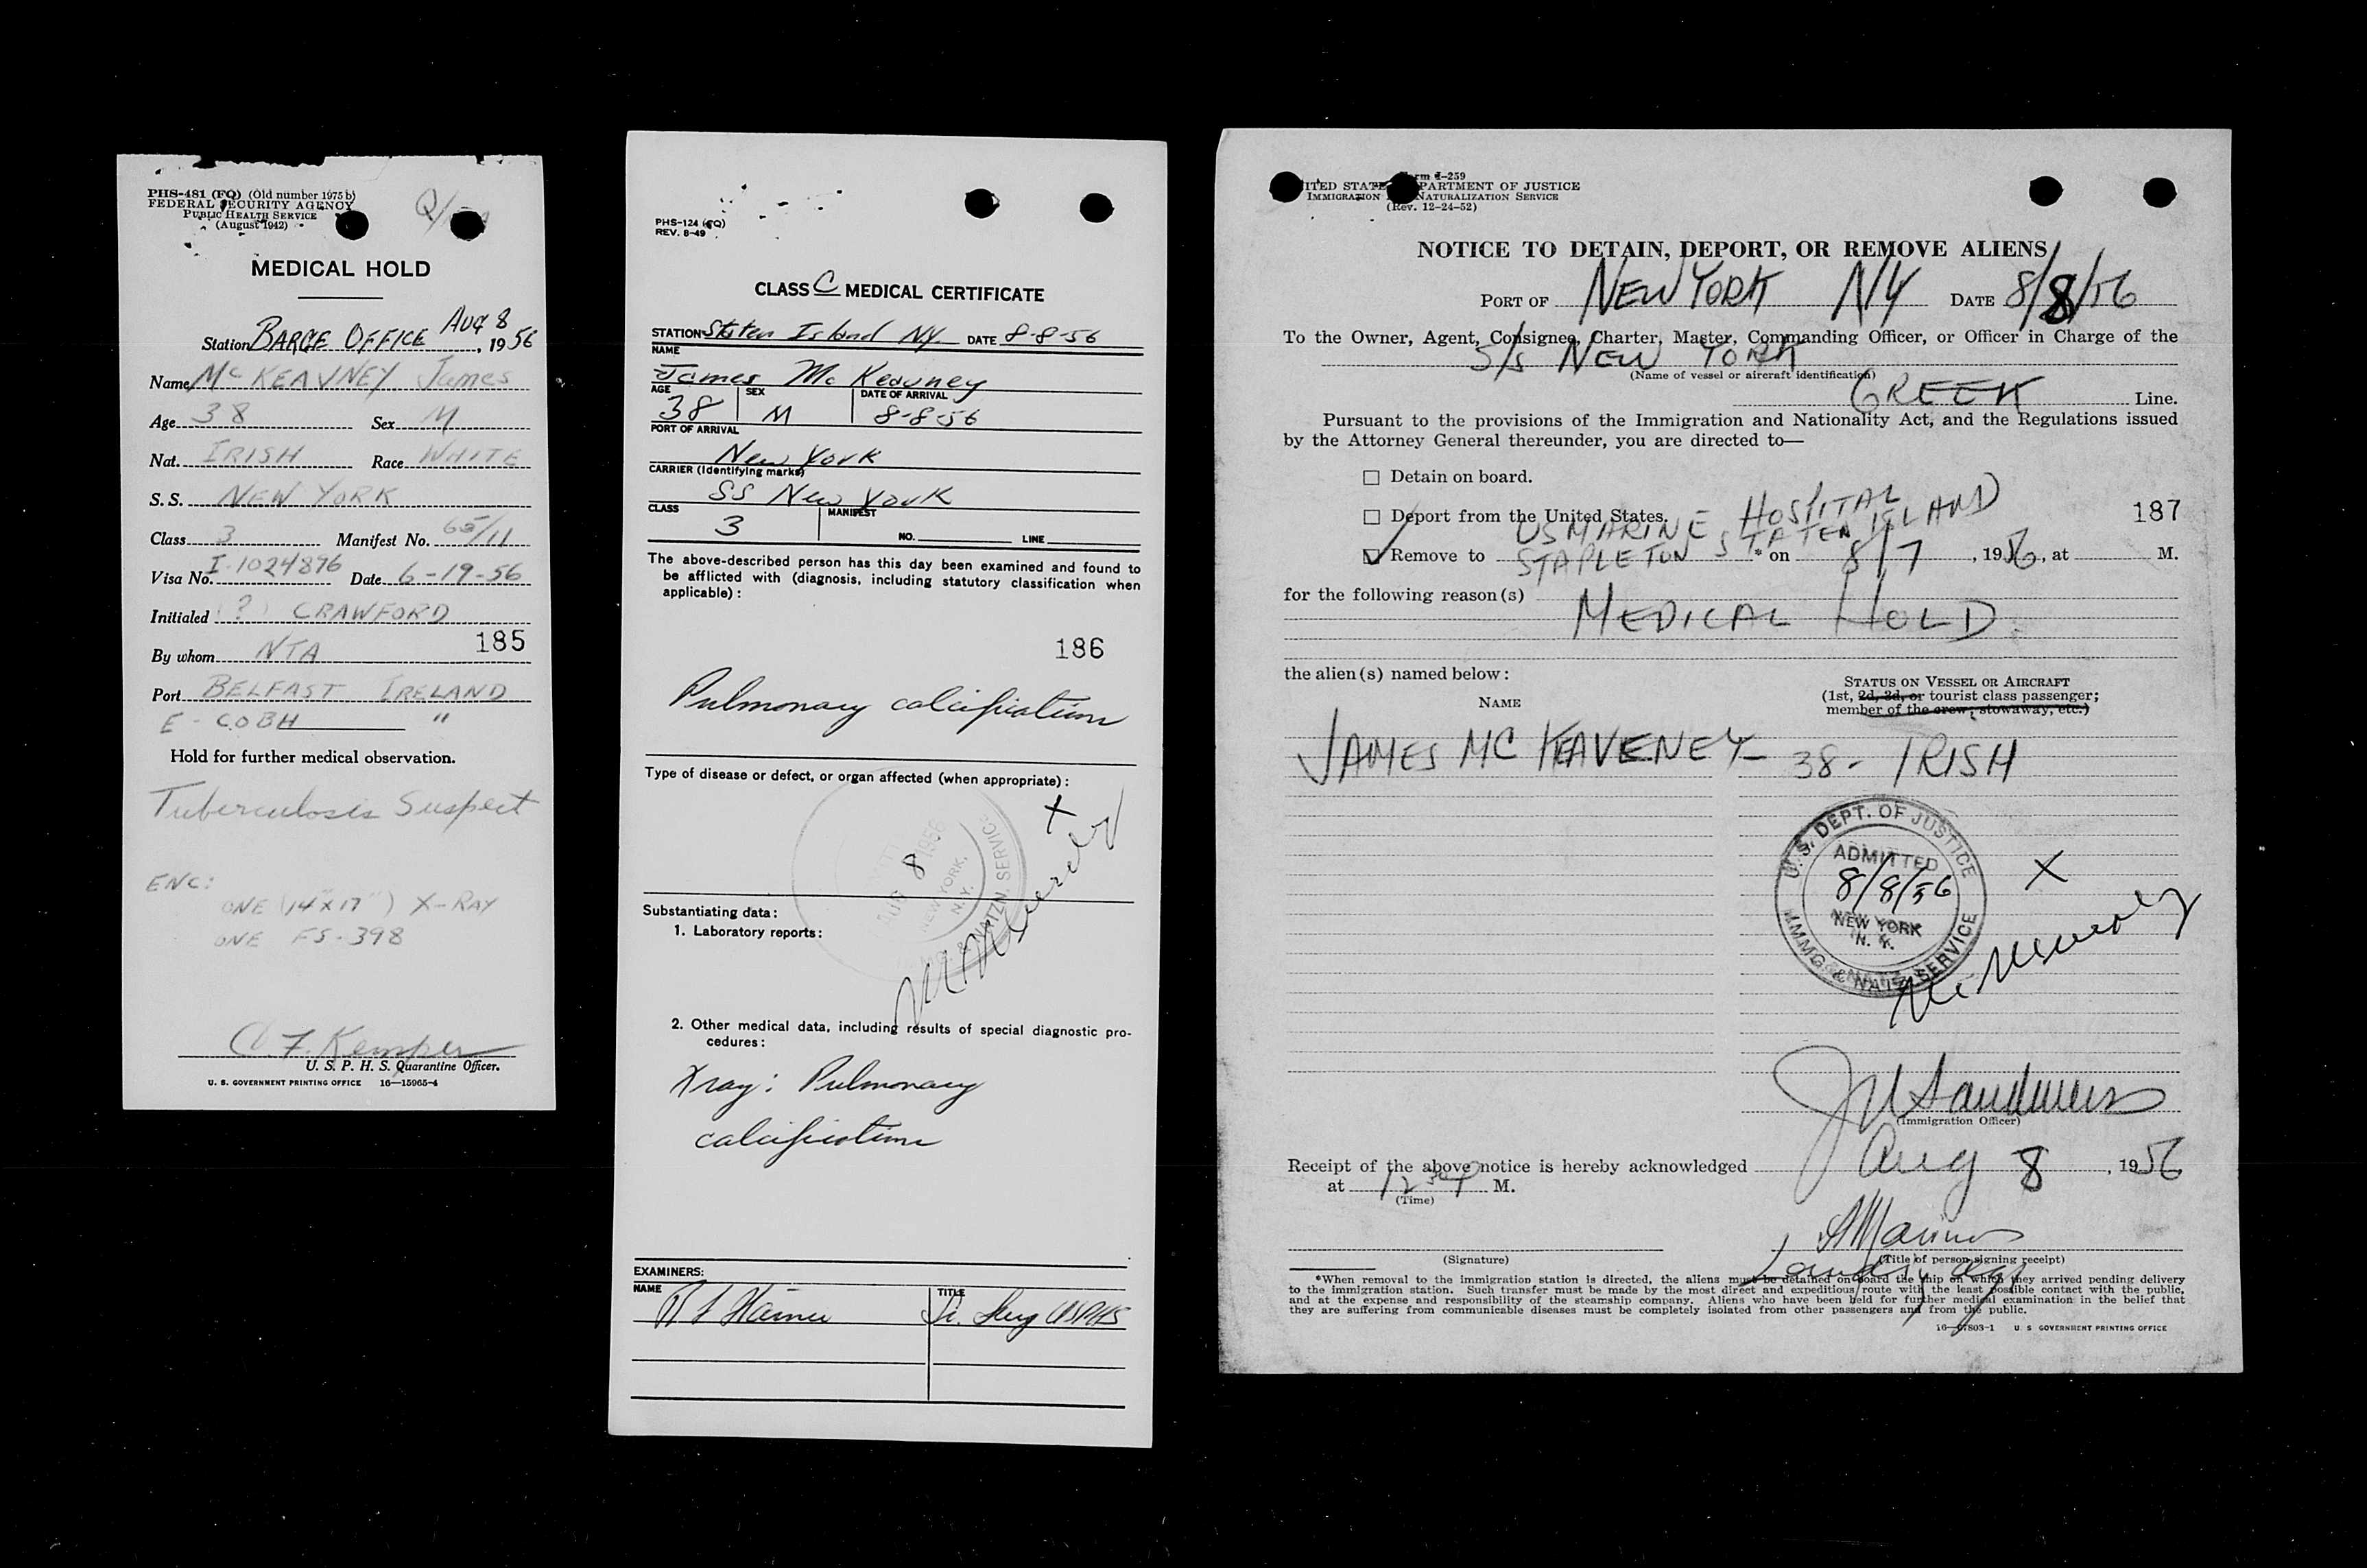 PHS-481 (FQ) (Old number 1975 b)
FEDERAL SECURITY AGENCY
PUBLIC HEALTH SERVICE
(August 1942)
MEDICAL HOLD
Aug 8
Station BARGE OFFICE, 1956
Name McKEAVNEY James
Age 38 Sex M
Nat. IRISH Race WHITE
S. S. NEW YORK
Class 3 Manifest No. 65/11
Visa No. I-1024896 Date 6-19-56
Initialed (?) CRAWFORD
By whom NTA 185
Port BELFAST IRELAND
E - COBH "
Hold for further medical observation.
Tuberculosis Suspect
ENC:
ONE (14"x17") X-RAY
ONE FS-398
C. F. Kemper
U. S. P. H. S. Quarantine Officer.
U. S. GOVERNMENT PRINTING OFFICE 16—15965-4
PHS-124 (FQ)
REV. 8-49
CLASS C MEDICAL CERTIFICATE
STATION Staten Island NY. DATE 8-8-56
NAME
James McKeavney
AGE SEX DATE OF ARRIVAL
38 M 8-8-56
PORT OF ARRIVAL
New York
CARRIER (Identifying marks)
SS New York
CLASS MANIFEST
3 NO. LINE
The above-described person has this day been examined and found to
be afflicted with (diagnosis, including statutory classification when
applicable):
186
Pulmonary calcification
Type of disease or defect, or organ affected (when appropriate):
X
AUG 8 1956
NEW YORK,
N.Y.
& NATZN. SERVICE
Substantiating data:
1. Laboratory reports:
2. Other medical data, including results of special diagnostic pro-
cedures:
Xray: Pulmonary
calcification
EXAMINERS:
NAME TITLE
Sr. Surg USPHS
Form I-259
UNITED STATES DEPARTMENT OF JUSTICE
IMMIGRATION AND NATURALIZATION SERVICE
(Rev. 12-24-52)
NOTICE TO DETAIN, DEPORT, OR REMOVE ALIENS
PORT OF NEW YORK NY DATE 8/8/56
To the Owner, Agent, Consignee, Charter, Master, Commanding Officer, or Officer in Charge of the
S/S NEW YORK
(Name of vessel or aircraft identification)
GREEK Line.
Pursuant to the provisions of the Immigration and Nationality Act, and the Regulations issued
by the Attorney General thereunder, you are directed to—
Detain on board.
Deport from the United States. 187
US MARINE HOSPITAL
Remove to STAPLETON STATEN ISLAND * on 8/7, 1956, at M.
for the following reason(s)
MEDICAL HOLD
the alien(s) named below:
STATUS ON VESSEL OR AIRCRAFT
(1st, 2d, 3d, or tourist class passenger;
member of the crew; stowaway, etc.)
NAME
JAMES MC KEAVENEY - 38 - IRISH
U. S. DEPT. OF JUSTICE
ADMITTED
8/8/56
NEW YORK
N. Y.
IMMG. & NATZ. SERVICE
X
(Immigration Officer)
Receipt of the above notice is hereby acknowledged Aug 8, 1956
at 12 30 P M.
(Time)
(Signature) (Title of person signing receipt)
*When removal to the immigration station is directed, the aliens must be detained on board the ship on which they arrived pending delivery
to the immigration station. Such transfer must be made by the most direct and expeditious route with the least possible contact with the public,
and at the expense and responsibility of the steamship company. Aliens who have been held for further medical examination in the belief that
they are suffering from communicable diseases must be completely isolated from other passengers and from the public.
U. S. GOVERNMENT PRINTING OFFICE